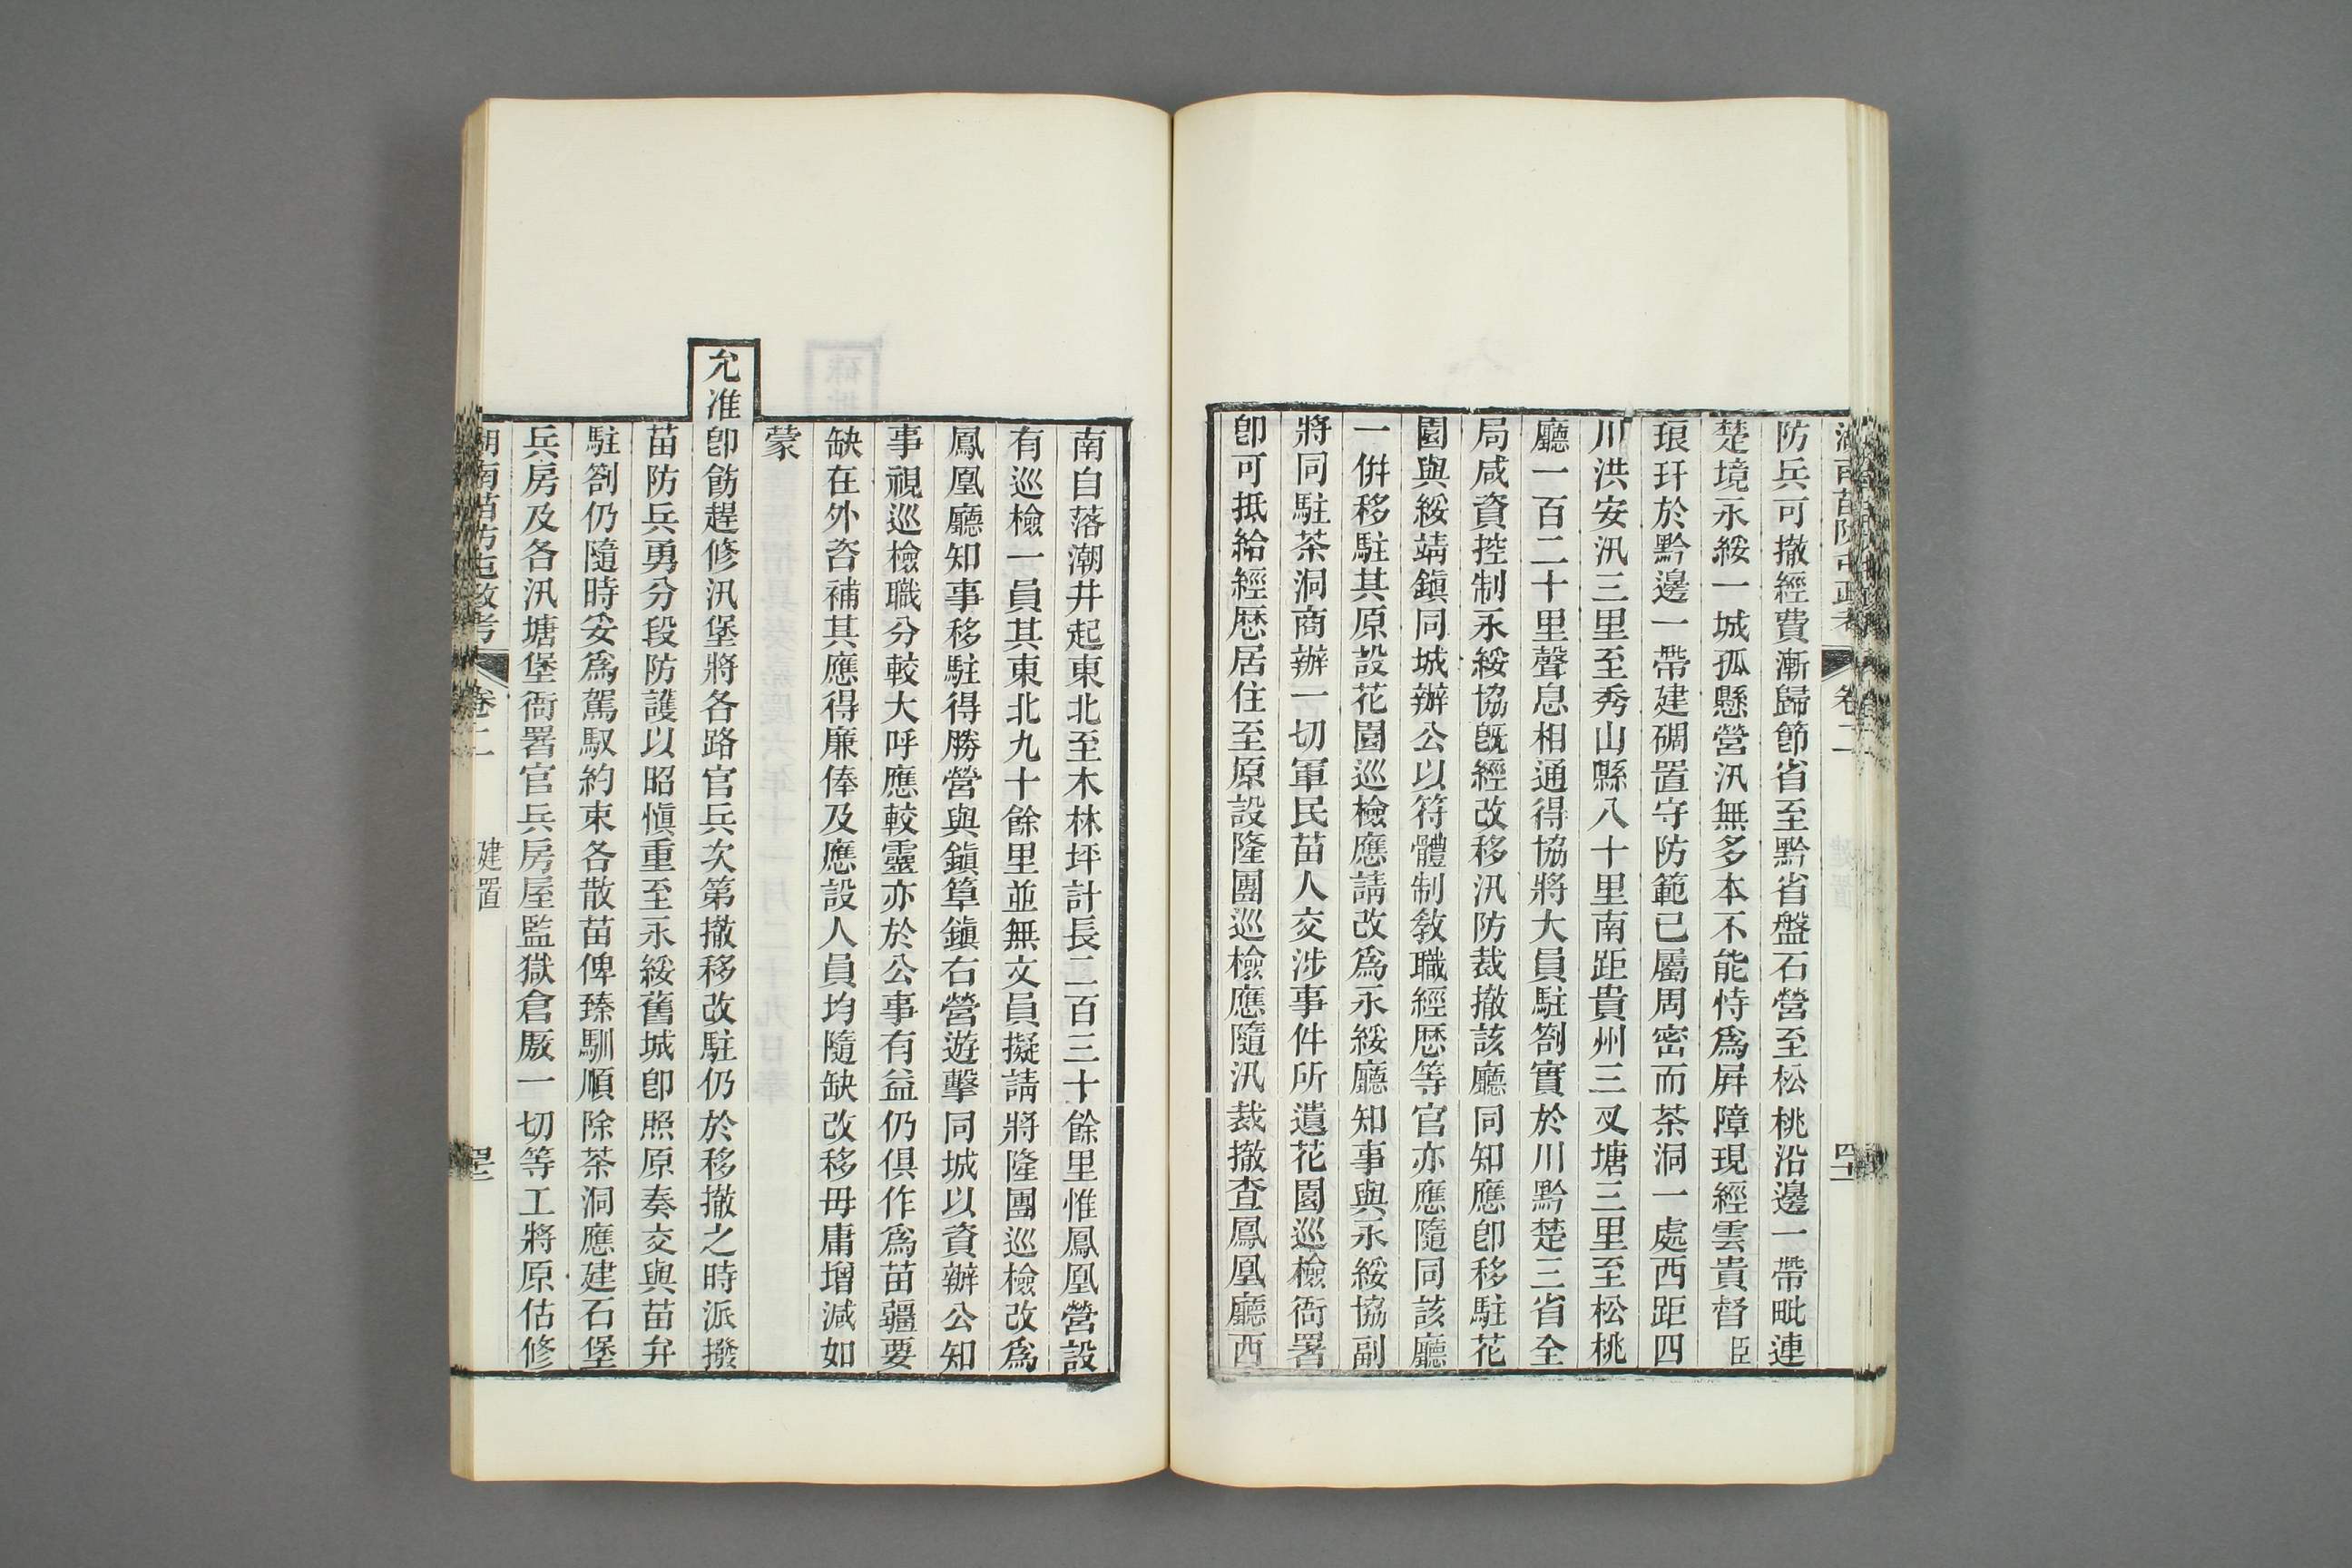 湖南苗防屯政考 卷二 四二
防兵可撤經費漸歸節省至黔省盤石營至松桃沿邊一帶毗連
楚境永綏一城孤懸營汛無多本不能恃爲屏障現經雲貴督臣
琅玕於黔邊一帶建碉置守防範已屬周密而茶洞一處西距四
川洪安汛三里至秀山縣八十里南距貴州三叉塘三里至松桃
廳一百二十里聲息相通得協將大員駐劄實於川黔楚三省全
局咸資控制永綏協旣經改移汛防裁撤該廳同知應卽移駐花
園與綏靖鎭同城辦公以符體制敎職經歷等官亦應隨同該廳
一併移駐其原設花園巡檢應請改爲永綏廳知事與永綏協副
將同駐茶洞商辦一切軍民苗人交涉事件所遺花園巡檢衙署
卽可抵給經歷居住至原設隆團巡檢應隨汛裁撤查鳳凰廳西
南自落潮井起東北至木林坪計長二百三十餘里惟鳳凰營設
有巡檢一員其東北九十餘里並無文員擬請將隆團巡檢改爲
鳳凰廳知事移駐得勝營與鎭筸鎭右營遊擊同城以資辦公知
事視巡檢職分較大呼應較靈亦於公事有益仍俱作爲苗疆要
缺在外咨補其應得廉俸及應設人員均隨缺改移毋庸增減如
蒙
允准卽飭趕修汛堡將各路官兵次第撤移改駐仍於移撤之時派撥
苗防兵勇分段防護以昭愼重至永綏舊城卽照原奏交與苗弁
駐劄仍隨時妥爲駕馭約束各散苗俾臻馴順除茶洞應建石堡
兵房及各汛塘堡衙署官兵房屋監獄倉厫一切等工將原估修
湖南苗防屯政考 卷二 建置